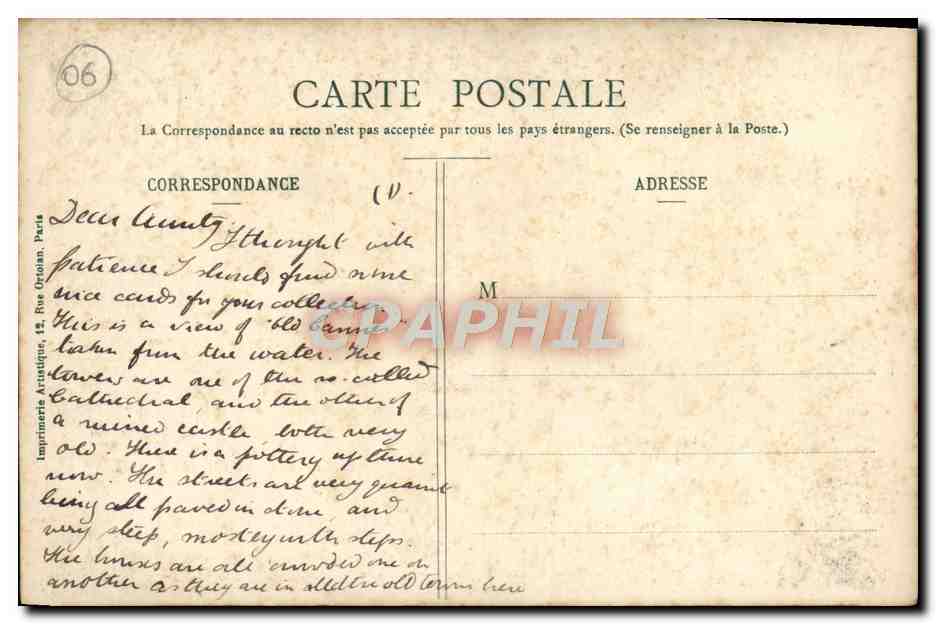 06
CARTE POSTALE
La Correspondance au recto n'est pas acceptée par tous les pays étrangers. (Se renseigner à la Poste.)
CORRESPONDANCE
ADRESSE
M
Imprimerie Artistique, 12, Rue Ortolan, Paris
CPAPHIL
Dear Aunty.
I thought with
patience I should find some
nice cards for your collection.
This is a view of "old Cannes"
taken from the water. The
towers are one of the so-called
Cathedral, and the other of
a ruined castle both very
old. There is a pottery up there
now. The streets are very quaint
being all paved in stone, and
very steep, mostly with steps.
The houses are all crowded one on
another as they are in all the old towns here